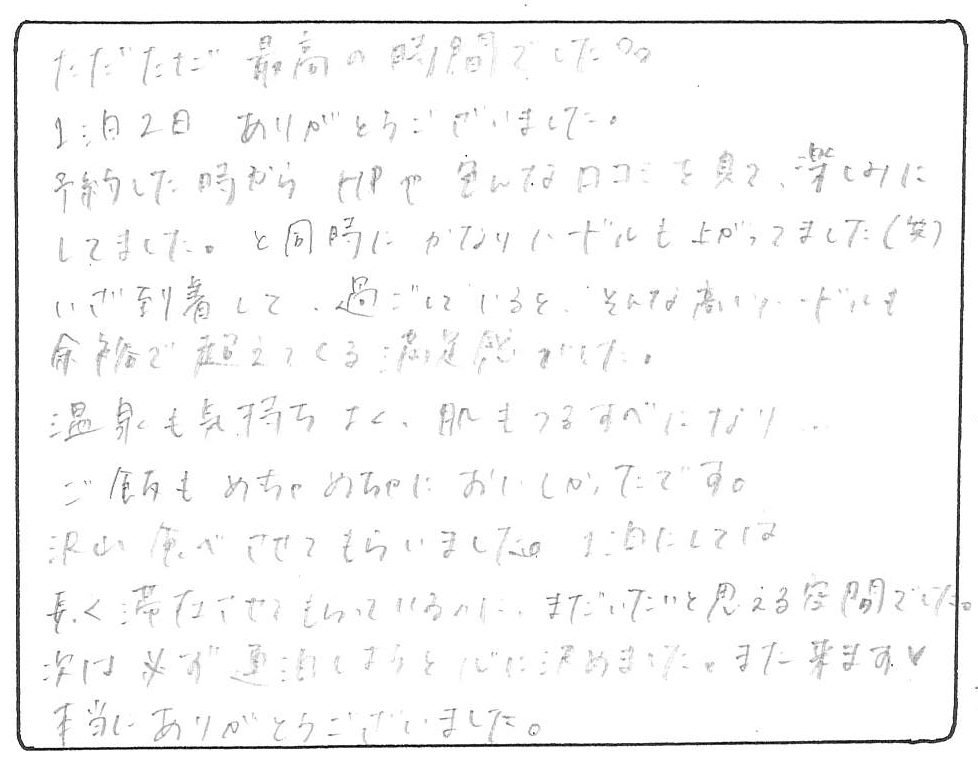 ただただ 最高の時間でした。
1泊2日 ありがとうございました。
予約した時から HPや色んな口コミを見て、楽しみに
してました。と同時に かなりハードルも上がってました(笑)
いざ到着して、過ごしていると、そんな高いハードルも
余裕で超えてくる満足感でした。
温泉も気持ちよく、肌もつるすべになり…
ご飯も めちゃめちゃに おいしかったです。
沢山 食べさせてもらいました。1泊にしては
長く滞在させてもらっているのに、まだいたいと思える空間でした。
次は 必ず 連泊しようと 心に決めました。また来ます♥
本当にありがとうございました。